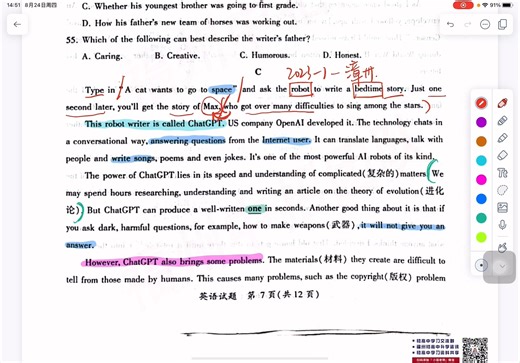 14:51 8月24日周四
91%
C. Whether his youngest brother was going to first grade.
D. How his father's new team of horses was working out.
55. Which of the following can best describe the writer's father?
A. Caring. B. Creative. C. Humorous. D. Honest.
C 2023-1-漳州.
Type in "A cat wants to go to space" and ask the robot to write a bedtime story. Just one
second later, you'll get the story of Max, who got over many difficulties to sing among the stars.
This robot writer is called ChatGPT. US company OpenAI developed it. The technology chats in
a conversational way, answering questions from the Internet user. It can translate languages, talk with
people and write songs, poems and even jokes. It's one of the most powerful AI robots of its kind.
The power of ChatGPT lies in its speed and understanding of complicated(复杂的)matters. We
may spend hours researching, understanding and writing an article on the theory of evolution(进化
论). But ChatGPT can produce a well-written one in seconds. Another good thing about it is that if
you ask dark, harmful questions, for example, how to make weapons(武器), it will not give you an
answer.
However, ChatGPT also brings some problems. The materials(材料) they create are difficult to
tell from those made by humans. This causes many problems, such as the copyright(版权) problem
英语试题 第7页(共12页)